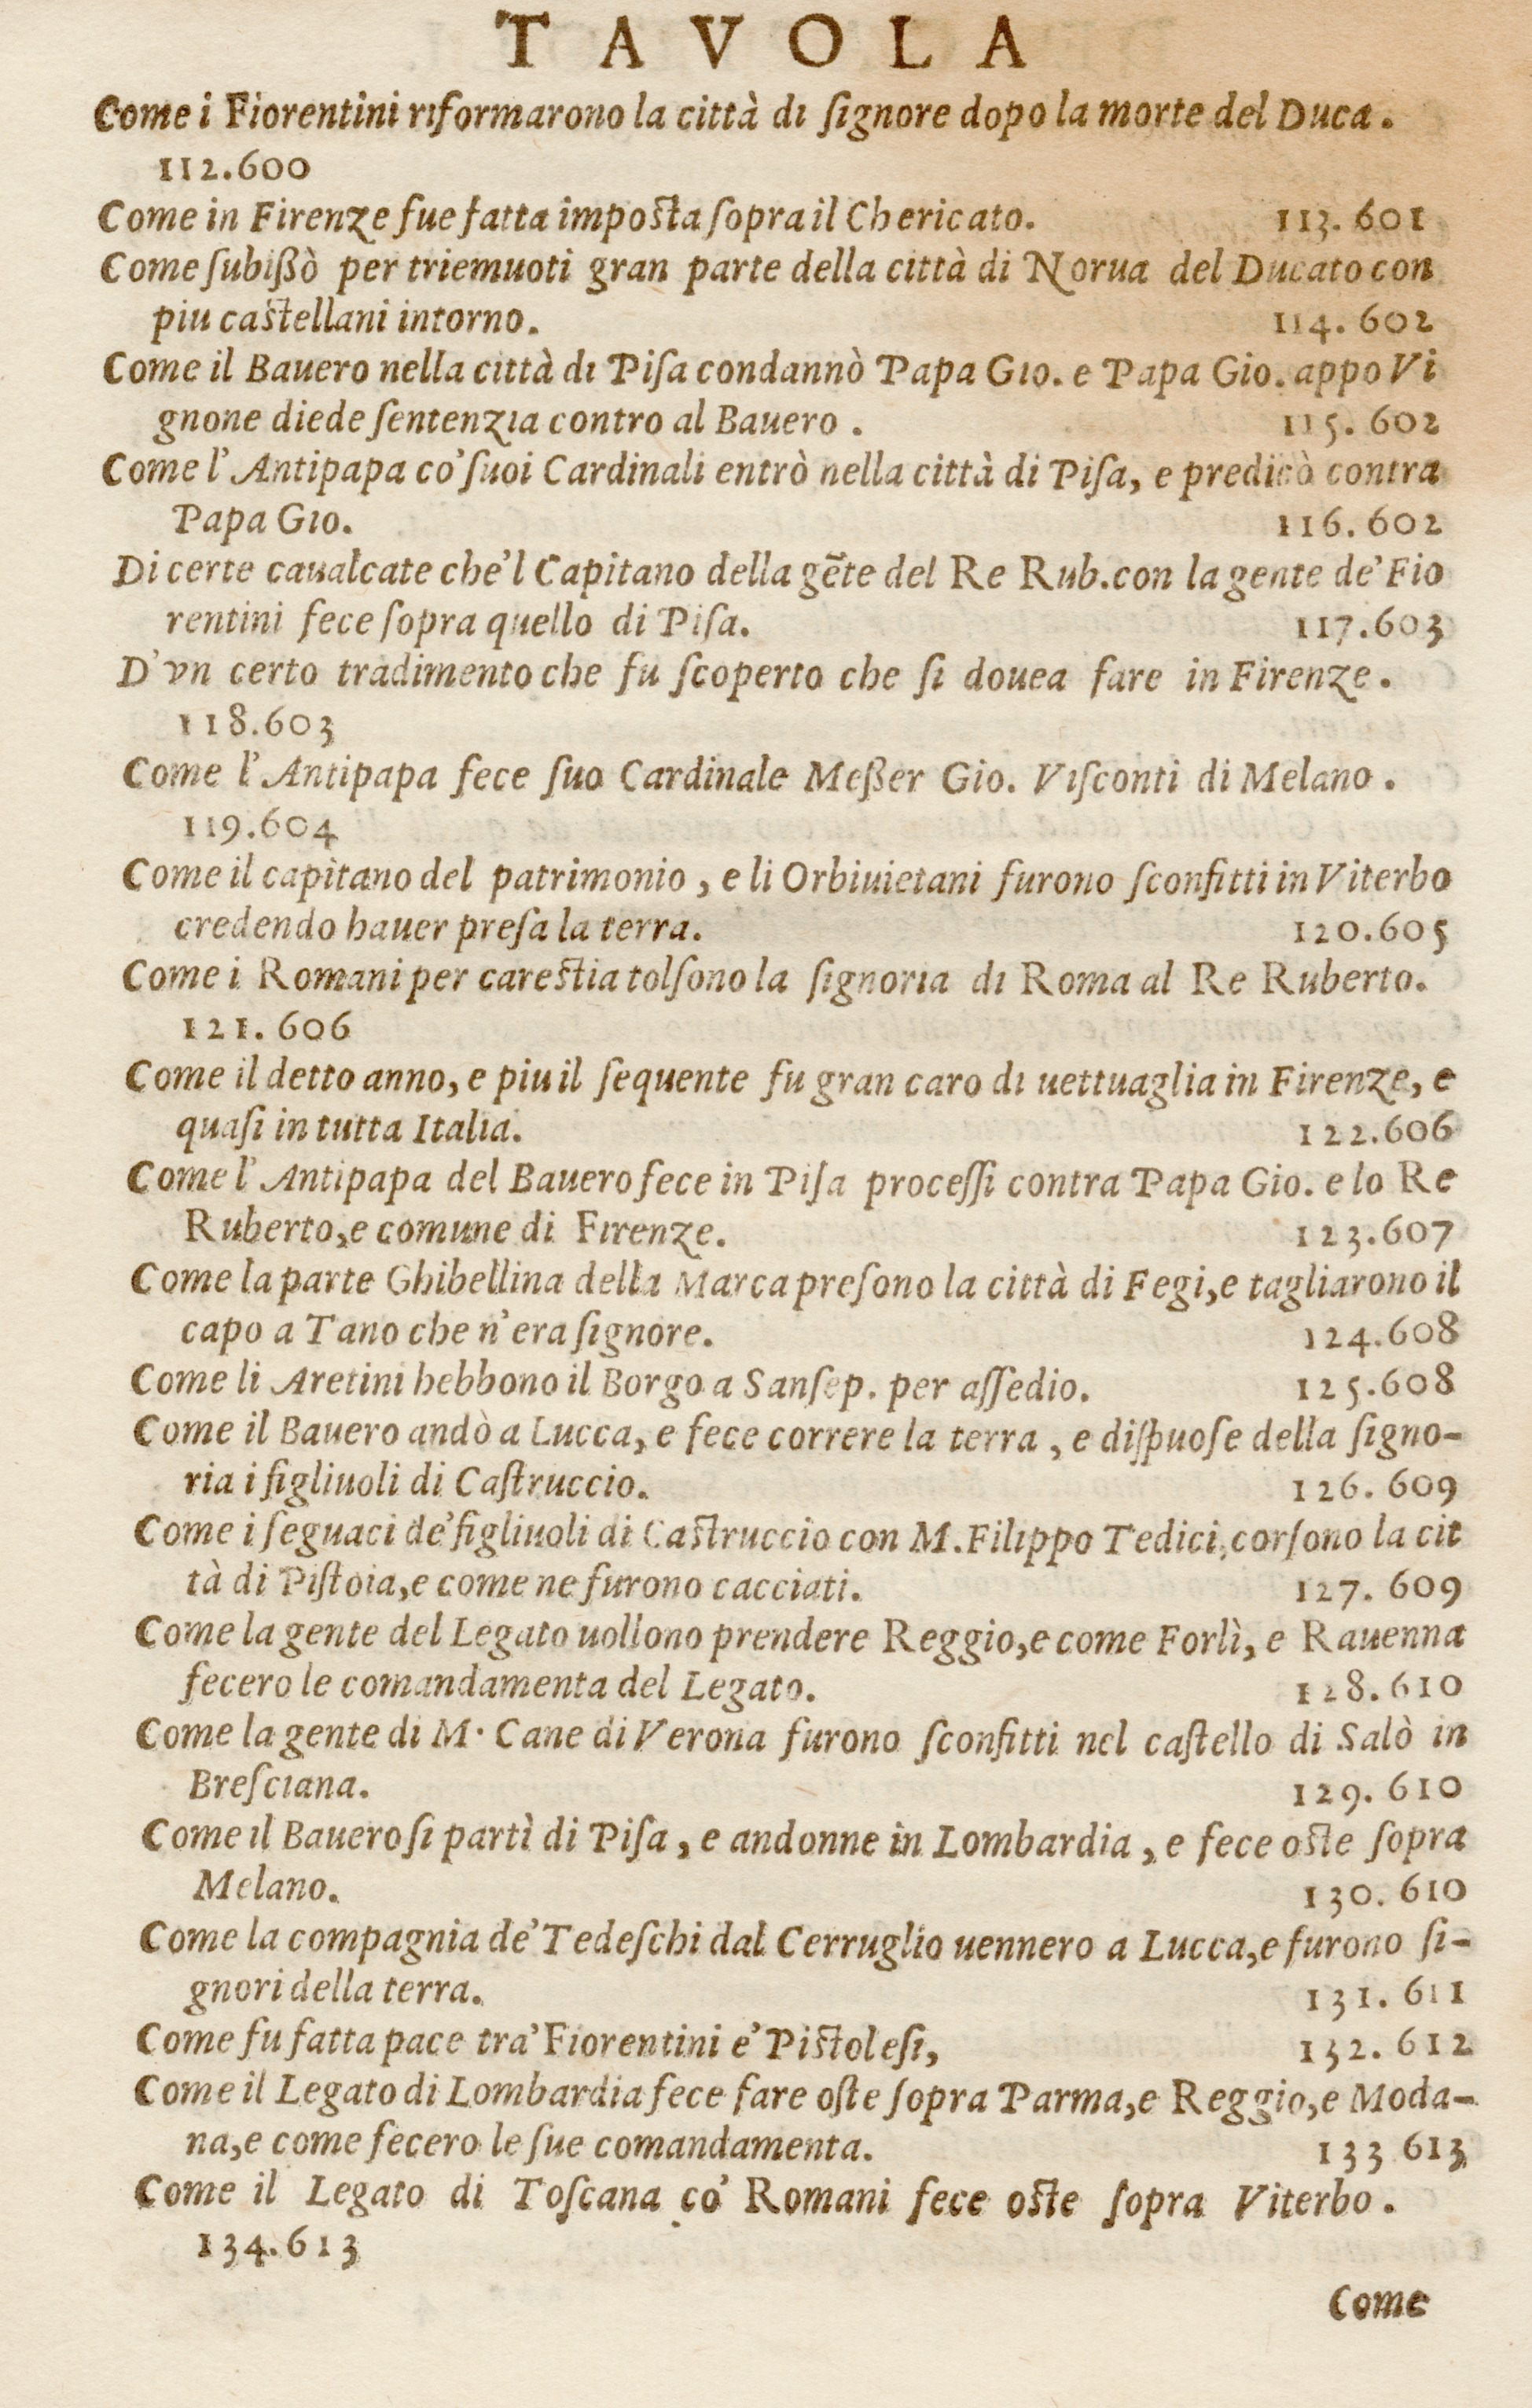 TAVOLA
Come i Fiorentini riformarono la città di ſignore dopo la morte del Duca.
112.600
Come in Firenze fue fatta impoſta ſopra il Chericato. 113. 601
Come ſubißò per triemuoti gran parte della città di Norua del Ducato con
piu caſtellani intorno. 114. 602
Come il Bauero nella città di Piſa condannò Papa Gio. e Papa Gio. appo Vi
gnone diede ſentenzia contro al Bauero . 115. 602
Come l'Antipapa co'ſuoi Cardinali entrò nella città di Piſa, e predicò contra
Papa Gio. 116. 602
Di certe caualcate che'l Capitano della gēte del Re Rub.con la gente de'Fio
rentini fece ſopra quello di Piſa. 117.603
D'vn certo tradimento che fu ſcoperto che ſi douea fare in Firenze.
118.603
Come l'Antipapa fece ſuo Cardinale Meßer Gio. Viſconti di Melano .
119.604
Come il capitano del patrimonio , e li Orbiuietani furono ſconfitti in Viterbo
credendo hauer preſa la terra. 120.605
Come i Romani per careſtia tolſono la ſignoria di Roma al Re Ruberto.
121. 606
Come il detto anno, e piu il ſequente fu gran caro di uettuaglia in Firenze, e
quaſi in tutta Italia. 122.606
Come l'Antipapa del Bauero fece in Piſa proceſſi contra Papa Gio. e lo Re
Ruberto,e comune di Firenze. 123.607
Come la parte Ghibellina della Marca preſono la città di Fegi,e tagliarono il
capo a Tano che n'era ſignore. 124.608
Come li Aretini hebbono il Borgo a Sanſep. per aſſedio. 125.608
Come il Bauero andò a Lucca, e fece correre la terra , e diſpuoſe della ſigno-
ria i figliuoli di Caſtruccio. 126. 609
Come i ſeguaci de'figliuoli di Caſtruccio con M.Filippo Tedici,corſono la cit
tà di Piſtoia,e come ne furono cacciati. 127. 609
Come la gente del Legato uollono prendere Reggio,e come Forlì, e Rauenna
fecero le comandamenta del Legato. 128.610
Come la gente di M. Cane di Verona furono ſconfitti nel caſtello di Salò in
Breſciana. 129. 610
Come il Bauero ſi partì di Piſa , e andonne in Lombardia , e fece oſte ſopra
Melano. 130. 610
Come la compagnia de'Tedeſchi dal Cerruglio uennero a Lucca,e furono ſi-
gnori della terra. 131. 611
Come fu fatta pace tra'Fiorentini e'Piſtoleſi, 132. 612
Come il Legato di Lombardia fece fare oſte ſopra Parma,e Reggio,e Moda-
na,e come fecero le ſue comandamenta. 133 613
Come il Legato di Toſcana co' Romani fece oſte ſopra Viterbo .
134.613
Come